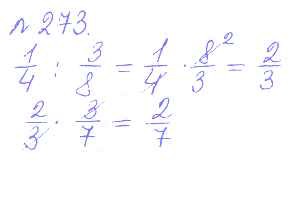 № 273.
1/4 : 3/8 = 1/4 · 8²/3 = 2/3
2/3 · 3/7 = 2/7